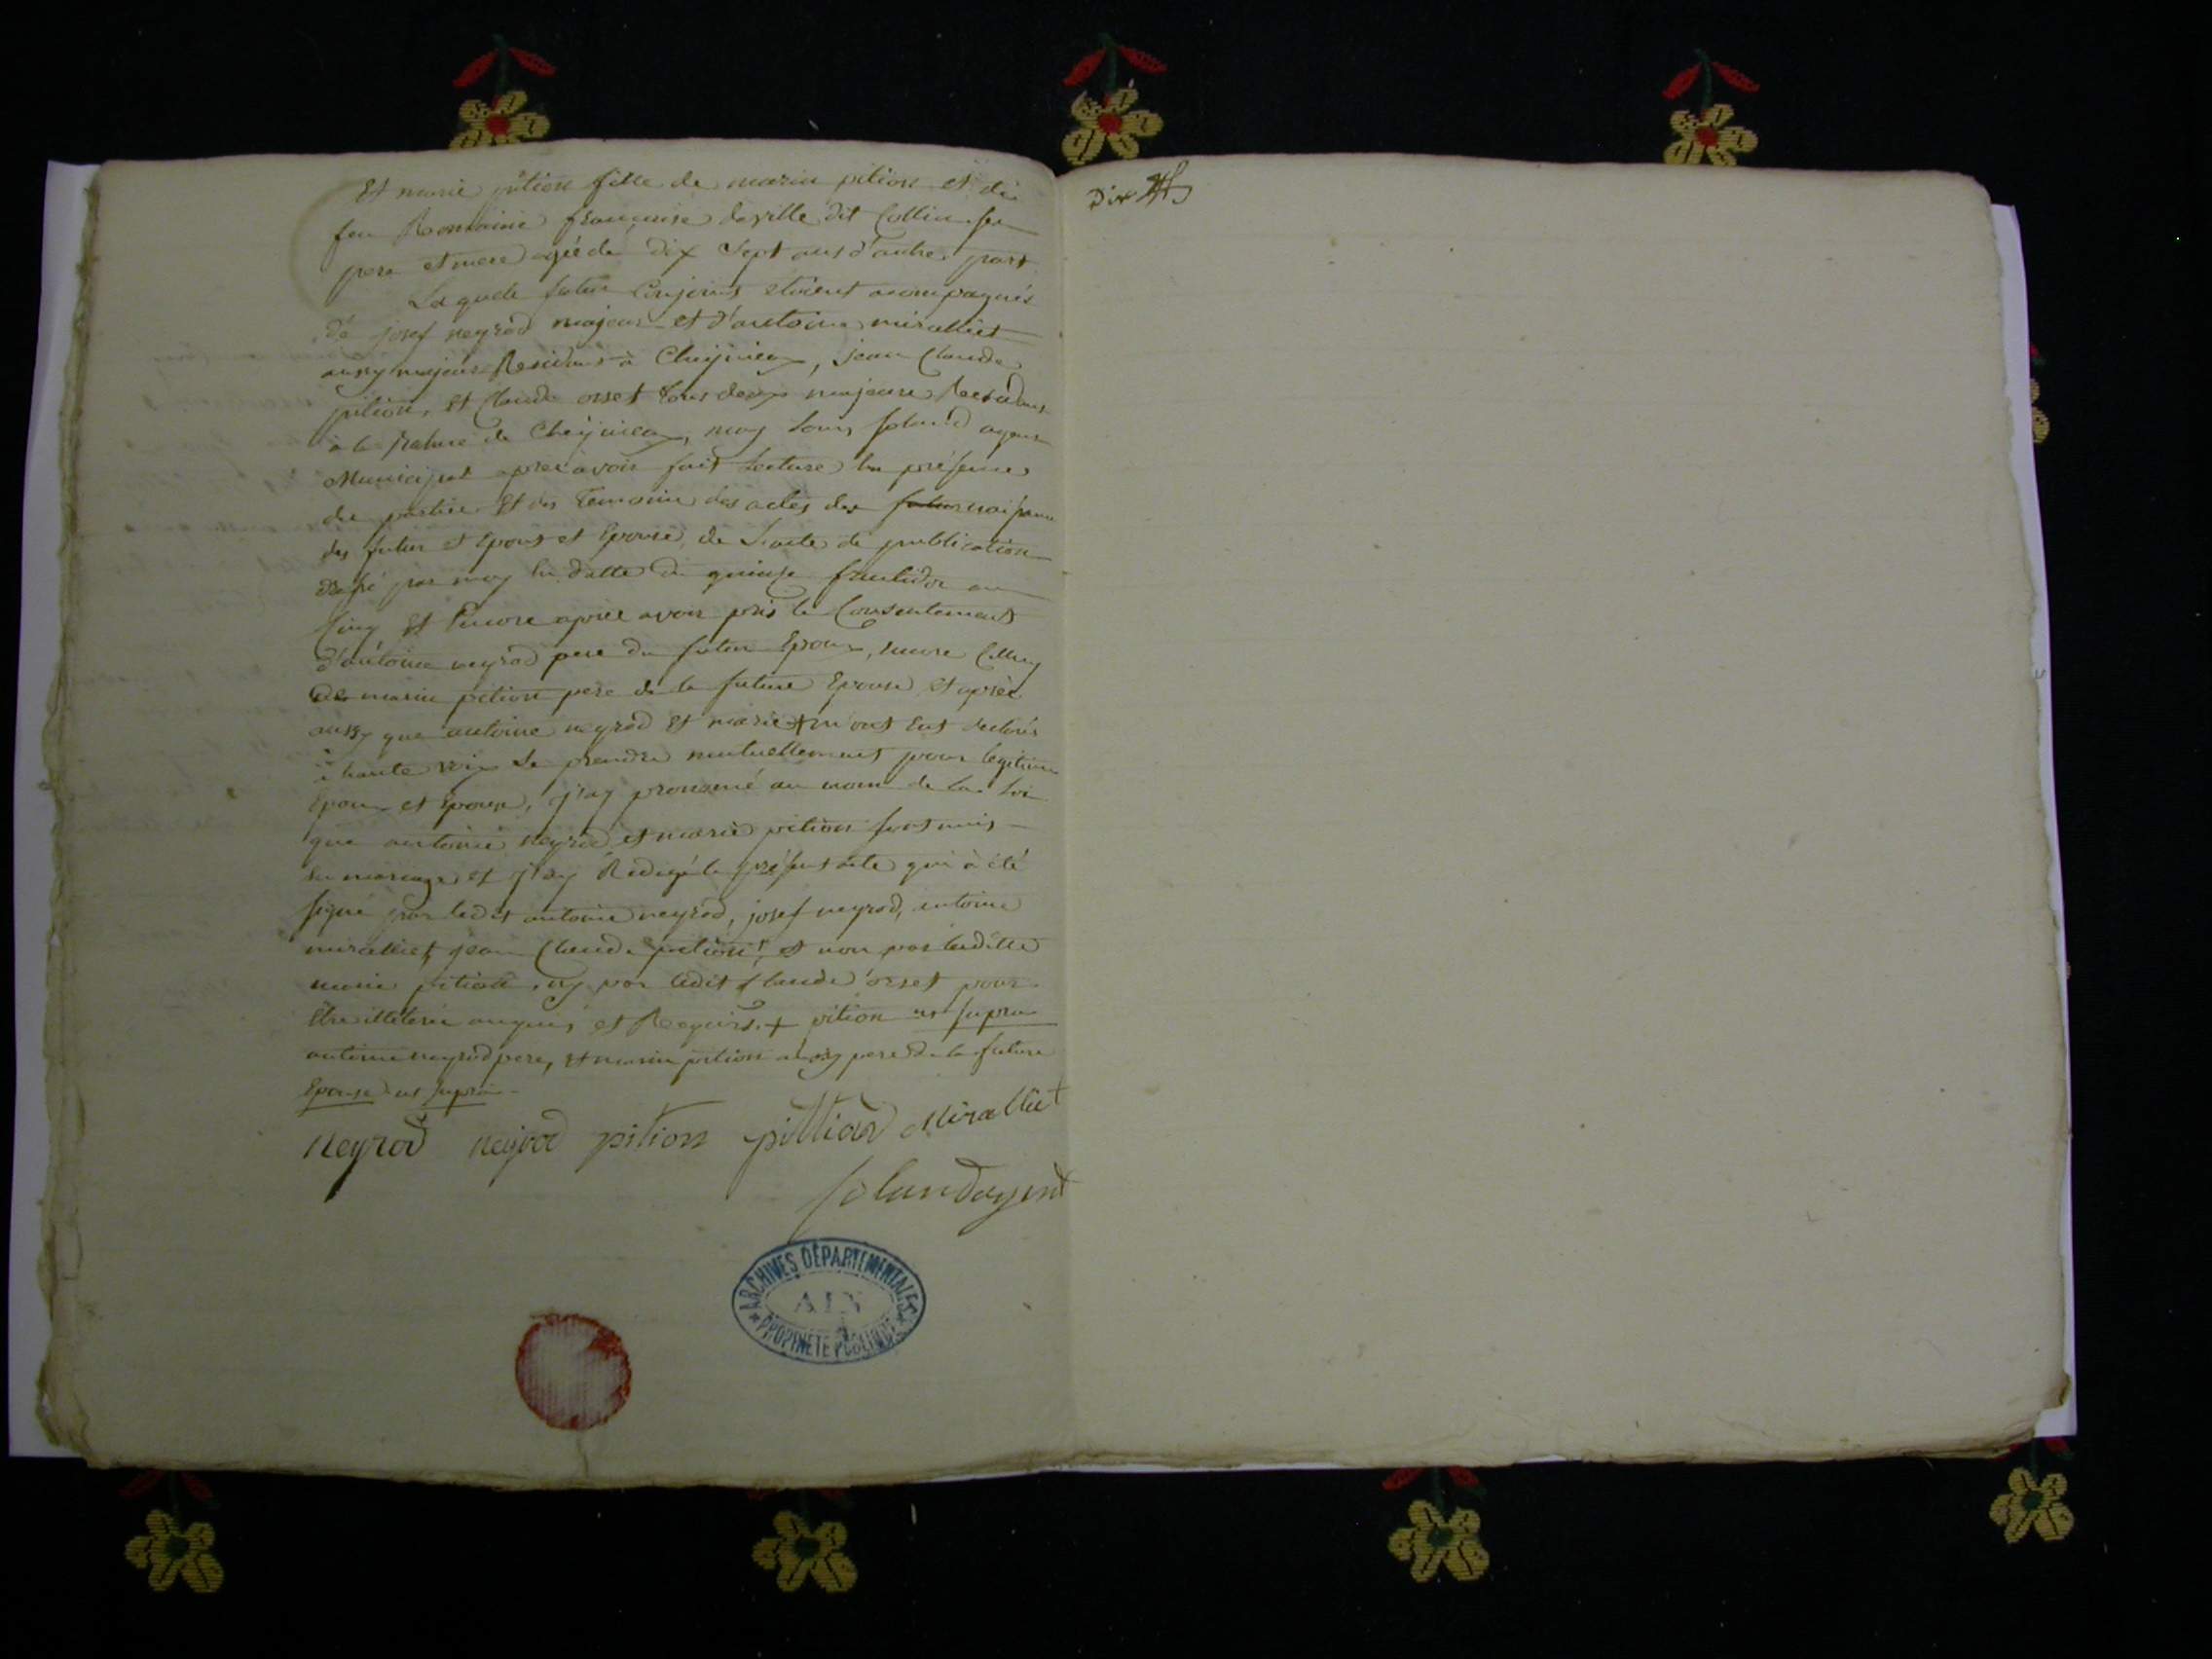 Et marie pition fille de marin pition et de
feu Romaine françoise deville dit Collin ses
pere et mere agée de dix sept ans d'autre part
Lesquels futur Conjoints etoient acompagnés
de josef neyrod majeur et d'antoine miralliet
aussy majeur Residant à Cheignieu, jean Claude
pition, et Claude orset tous deux majeurs Residant
à la de Cheignieu, moy Louis Soland agent
Municipal apres avoir fait Lecture En présence
des parties Et des Temoins des actes des futur naissance
des futur et Epoux et Epouse, de L'acte de publication
par moy En datte du quinse fructidor an
Cinq, Et Encore après avoir pris le Consentement
d'antoine neyrod pere du futur Epoux, encore Celluy
de marin pition pere de la future Epouse, Et après
aussy que antoine neyrod Et marie + m'ont Eut declarés
à haute voix Se prendre mutuellement pour legitime
Epoux et Epouse, j'ay prononcé au nom de La Loi
que antoine neyrod et marie pition sont unis
En mariage et j'ay Redigé le présent acte qui à été
signé par ledit antoine neyrod, josef neyrod, antoine
miralliet, jean Claude pition, et non par laditte
marie pition, ny par ledit Claude orset pour
Etre illeteré enquis et Requis. + pition ut supra
antoine neyrod pere, et marin pition aussy pere de la future
Epouse ut supra
Neyrod neyrod pition pittion Miralliet
Soland agent
ARCHIVES DÉPARTEMENTALES
AIN
PROPRIÉTÉ PUBLIQUE
Dix